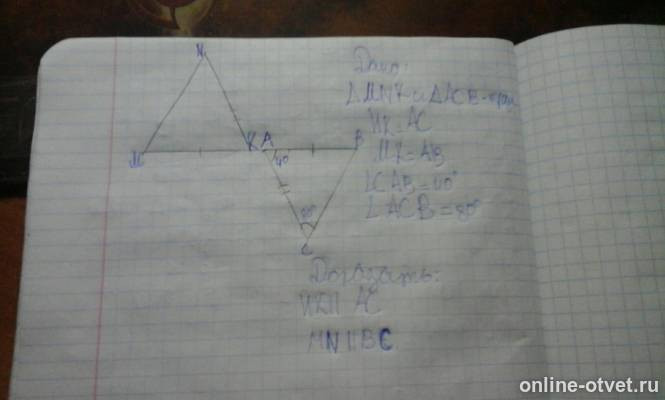 N
M
K A
B
40°
80°
C
Дано:
△MNK и △ACB -
NK=AC
MK=AB
∠CAB=40°
∠ACB=80°
Доказать:
NK || AC
MN || BC
online-otvet.ru